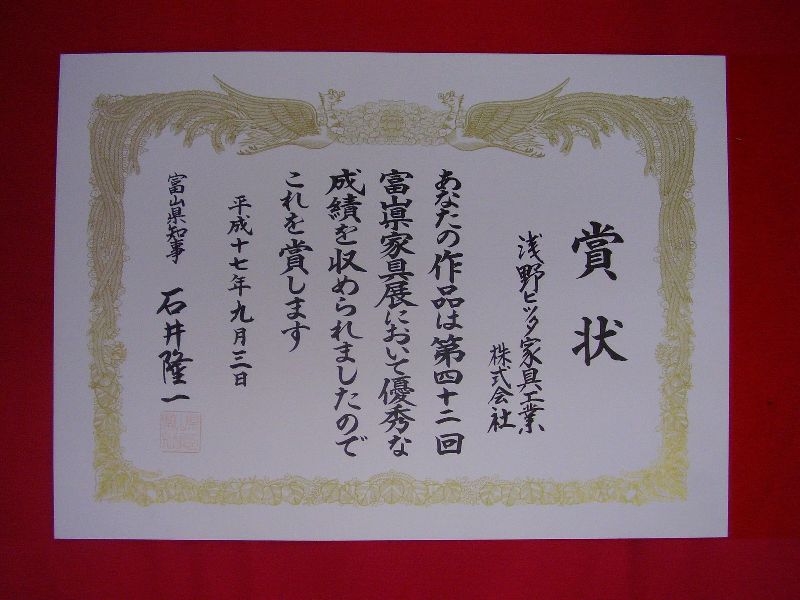 賞状
浅野ヒツタ家具工業
株式会社
あなたの作品は第四十二回
富山県家具展において優秀な
成績を収められましたので
これを賞します
平成十七年九月三日
富山県知事 石井隆一